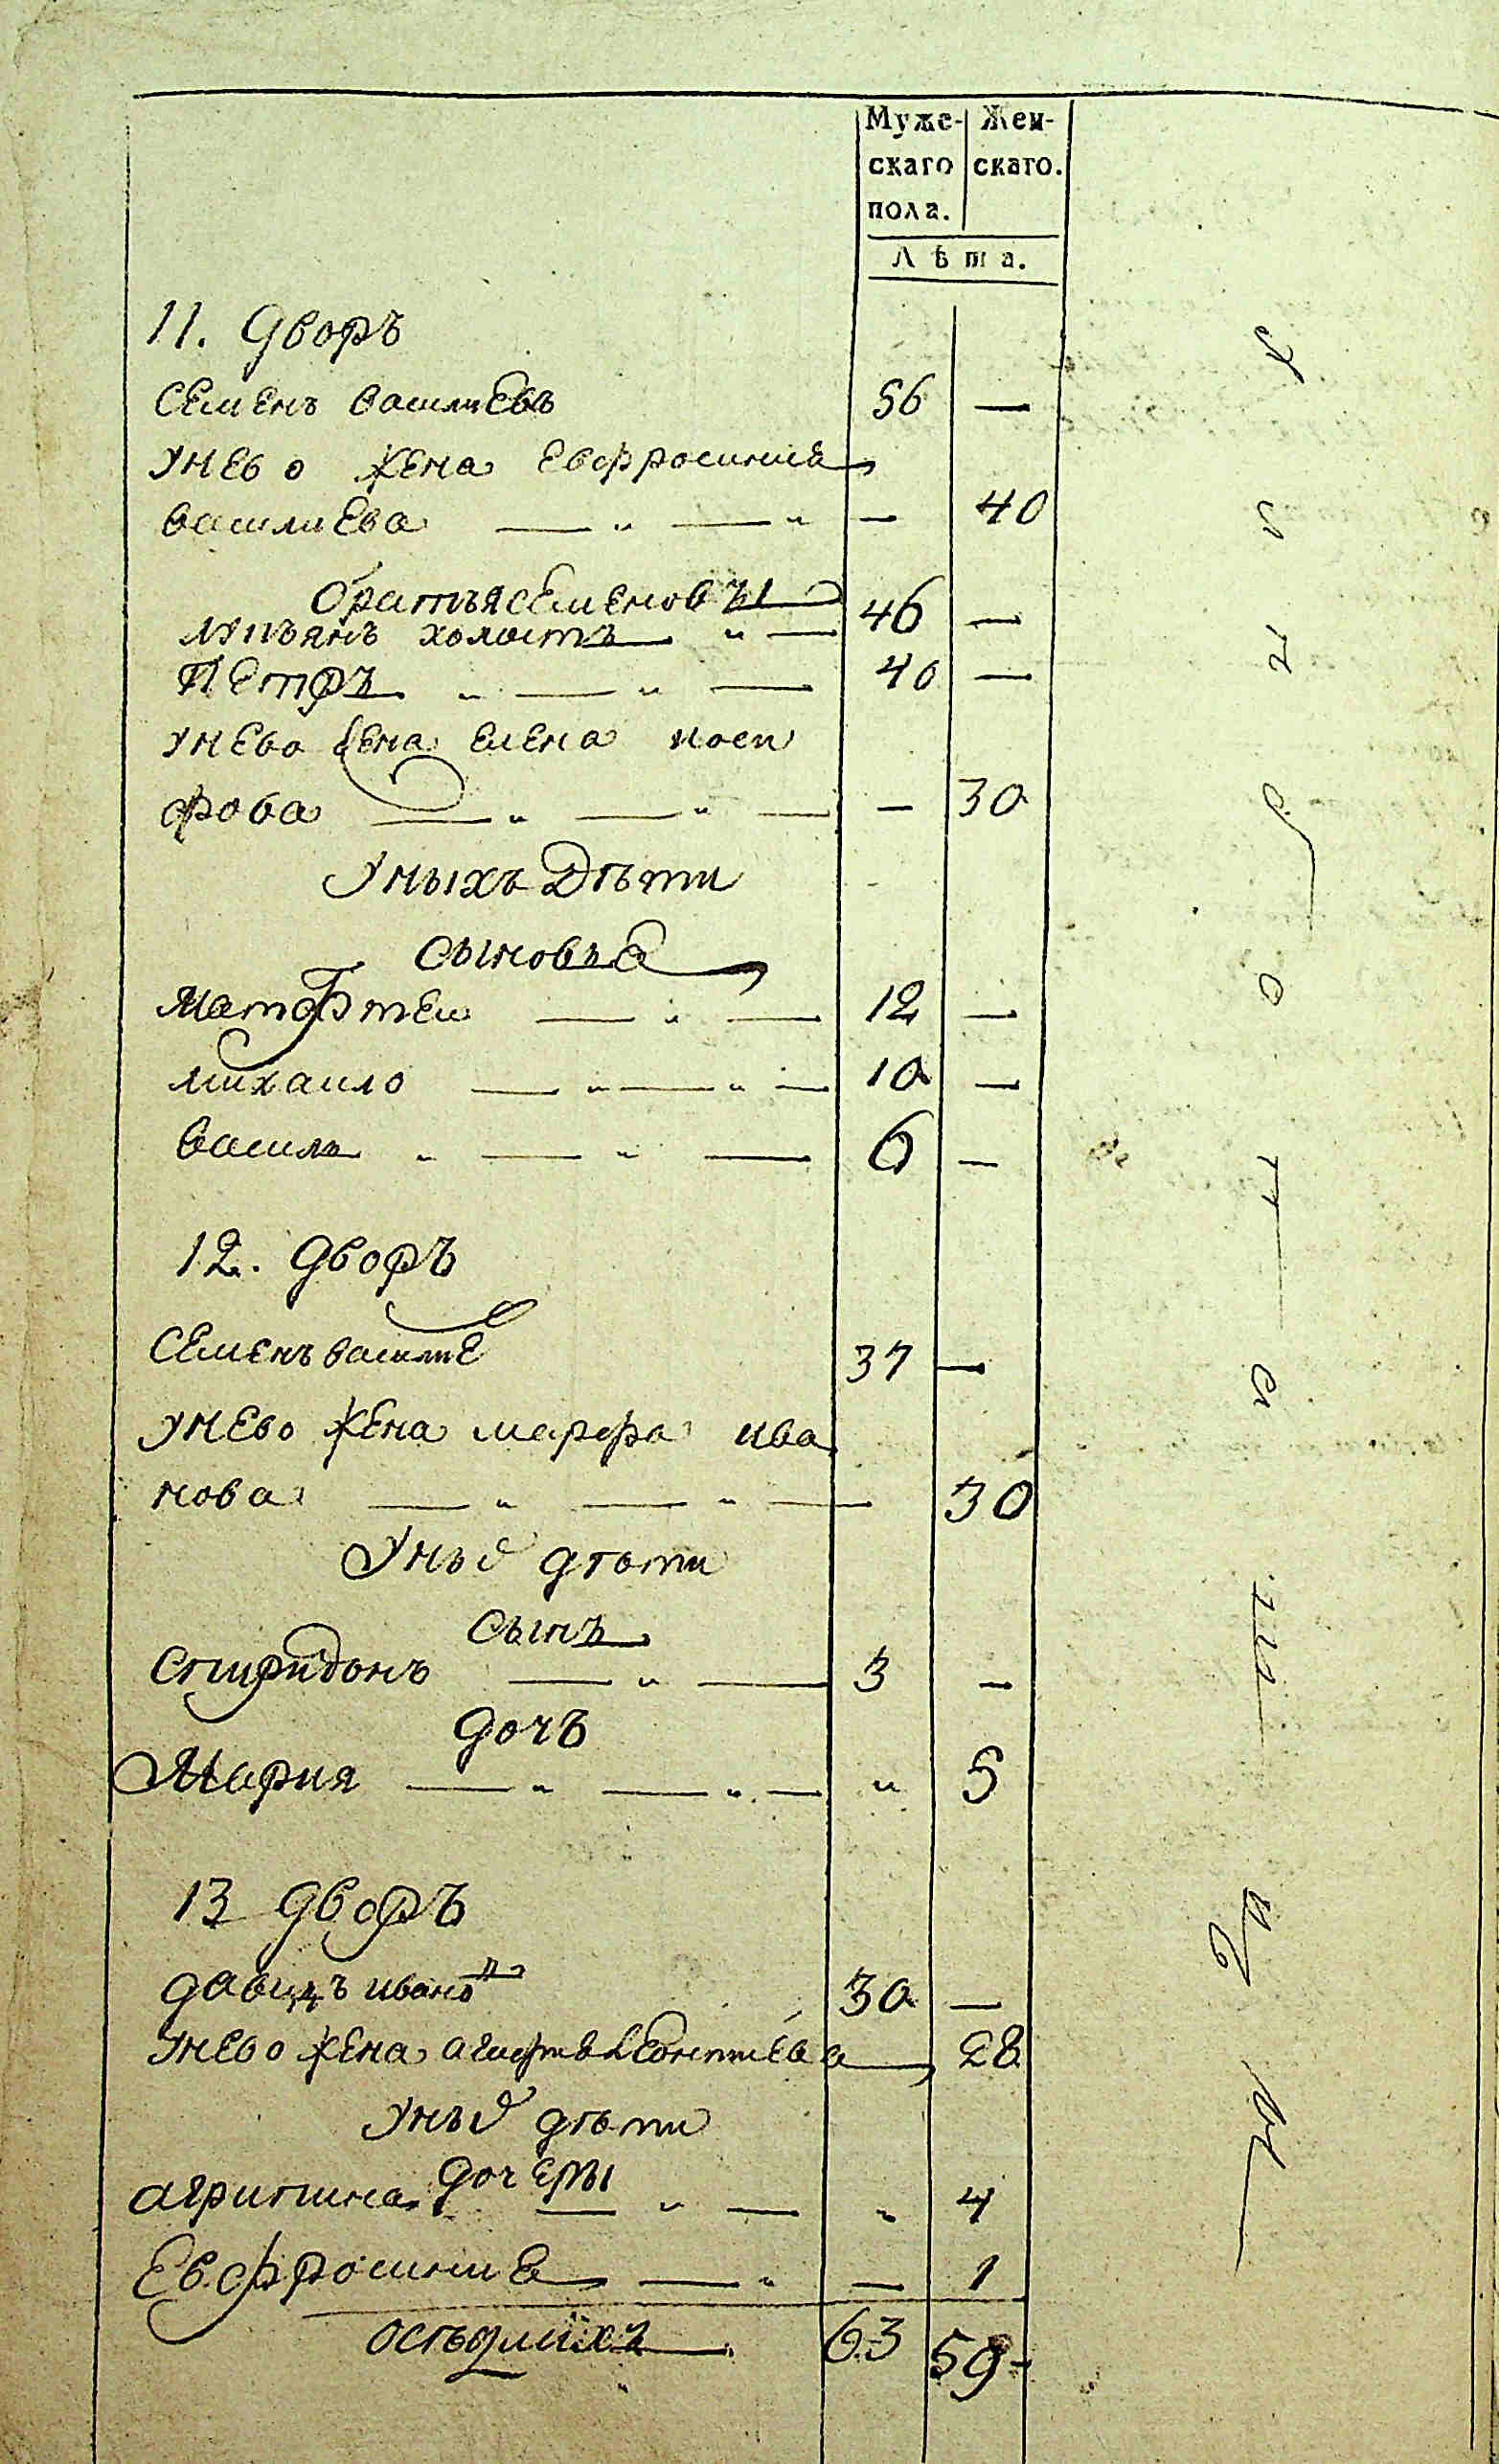 Муже- Жен-
скаго скаго.
пола.
Лѣта.
11. Дворъ
Семенъ василиевъ 56 —
унево жена евфросиниа
василиева — „ — „ — 40
братья семеновы
лупъянъ холостъ „ — 46 —
Петръ „ — „ — 40 —
унево жена елена иоси
фова — „ — „ — — 30
Уныхъ Дѣти
сыновъа
матфѣеи — „ — 12 —
михаило — „ — „ — 10 —
василь „ — „ — 6 —
12. Дворъ
Семенъ василие 37 —
унево жена марфа ива
нова — „ — „ — 30
Унъх дѣти
сынъ
Спиридонъ — „ — 3 —
дочъ
Мария — „ — „ — „ 5
13 Дворъ
давидъ ивано 30 —
унево жена леонтиева 28
Унъх дѣти
дочеры
агрипина — „ — „ 4
Евфросиниа — „ — 1
осѣдлихъ 63 59